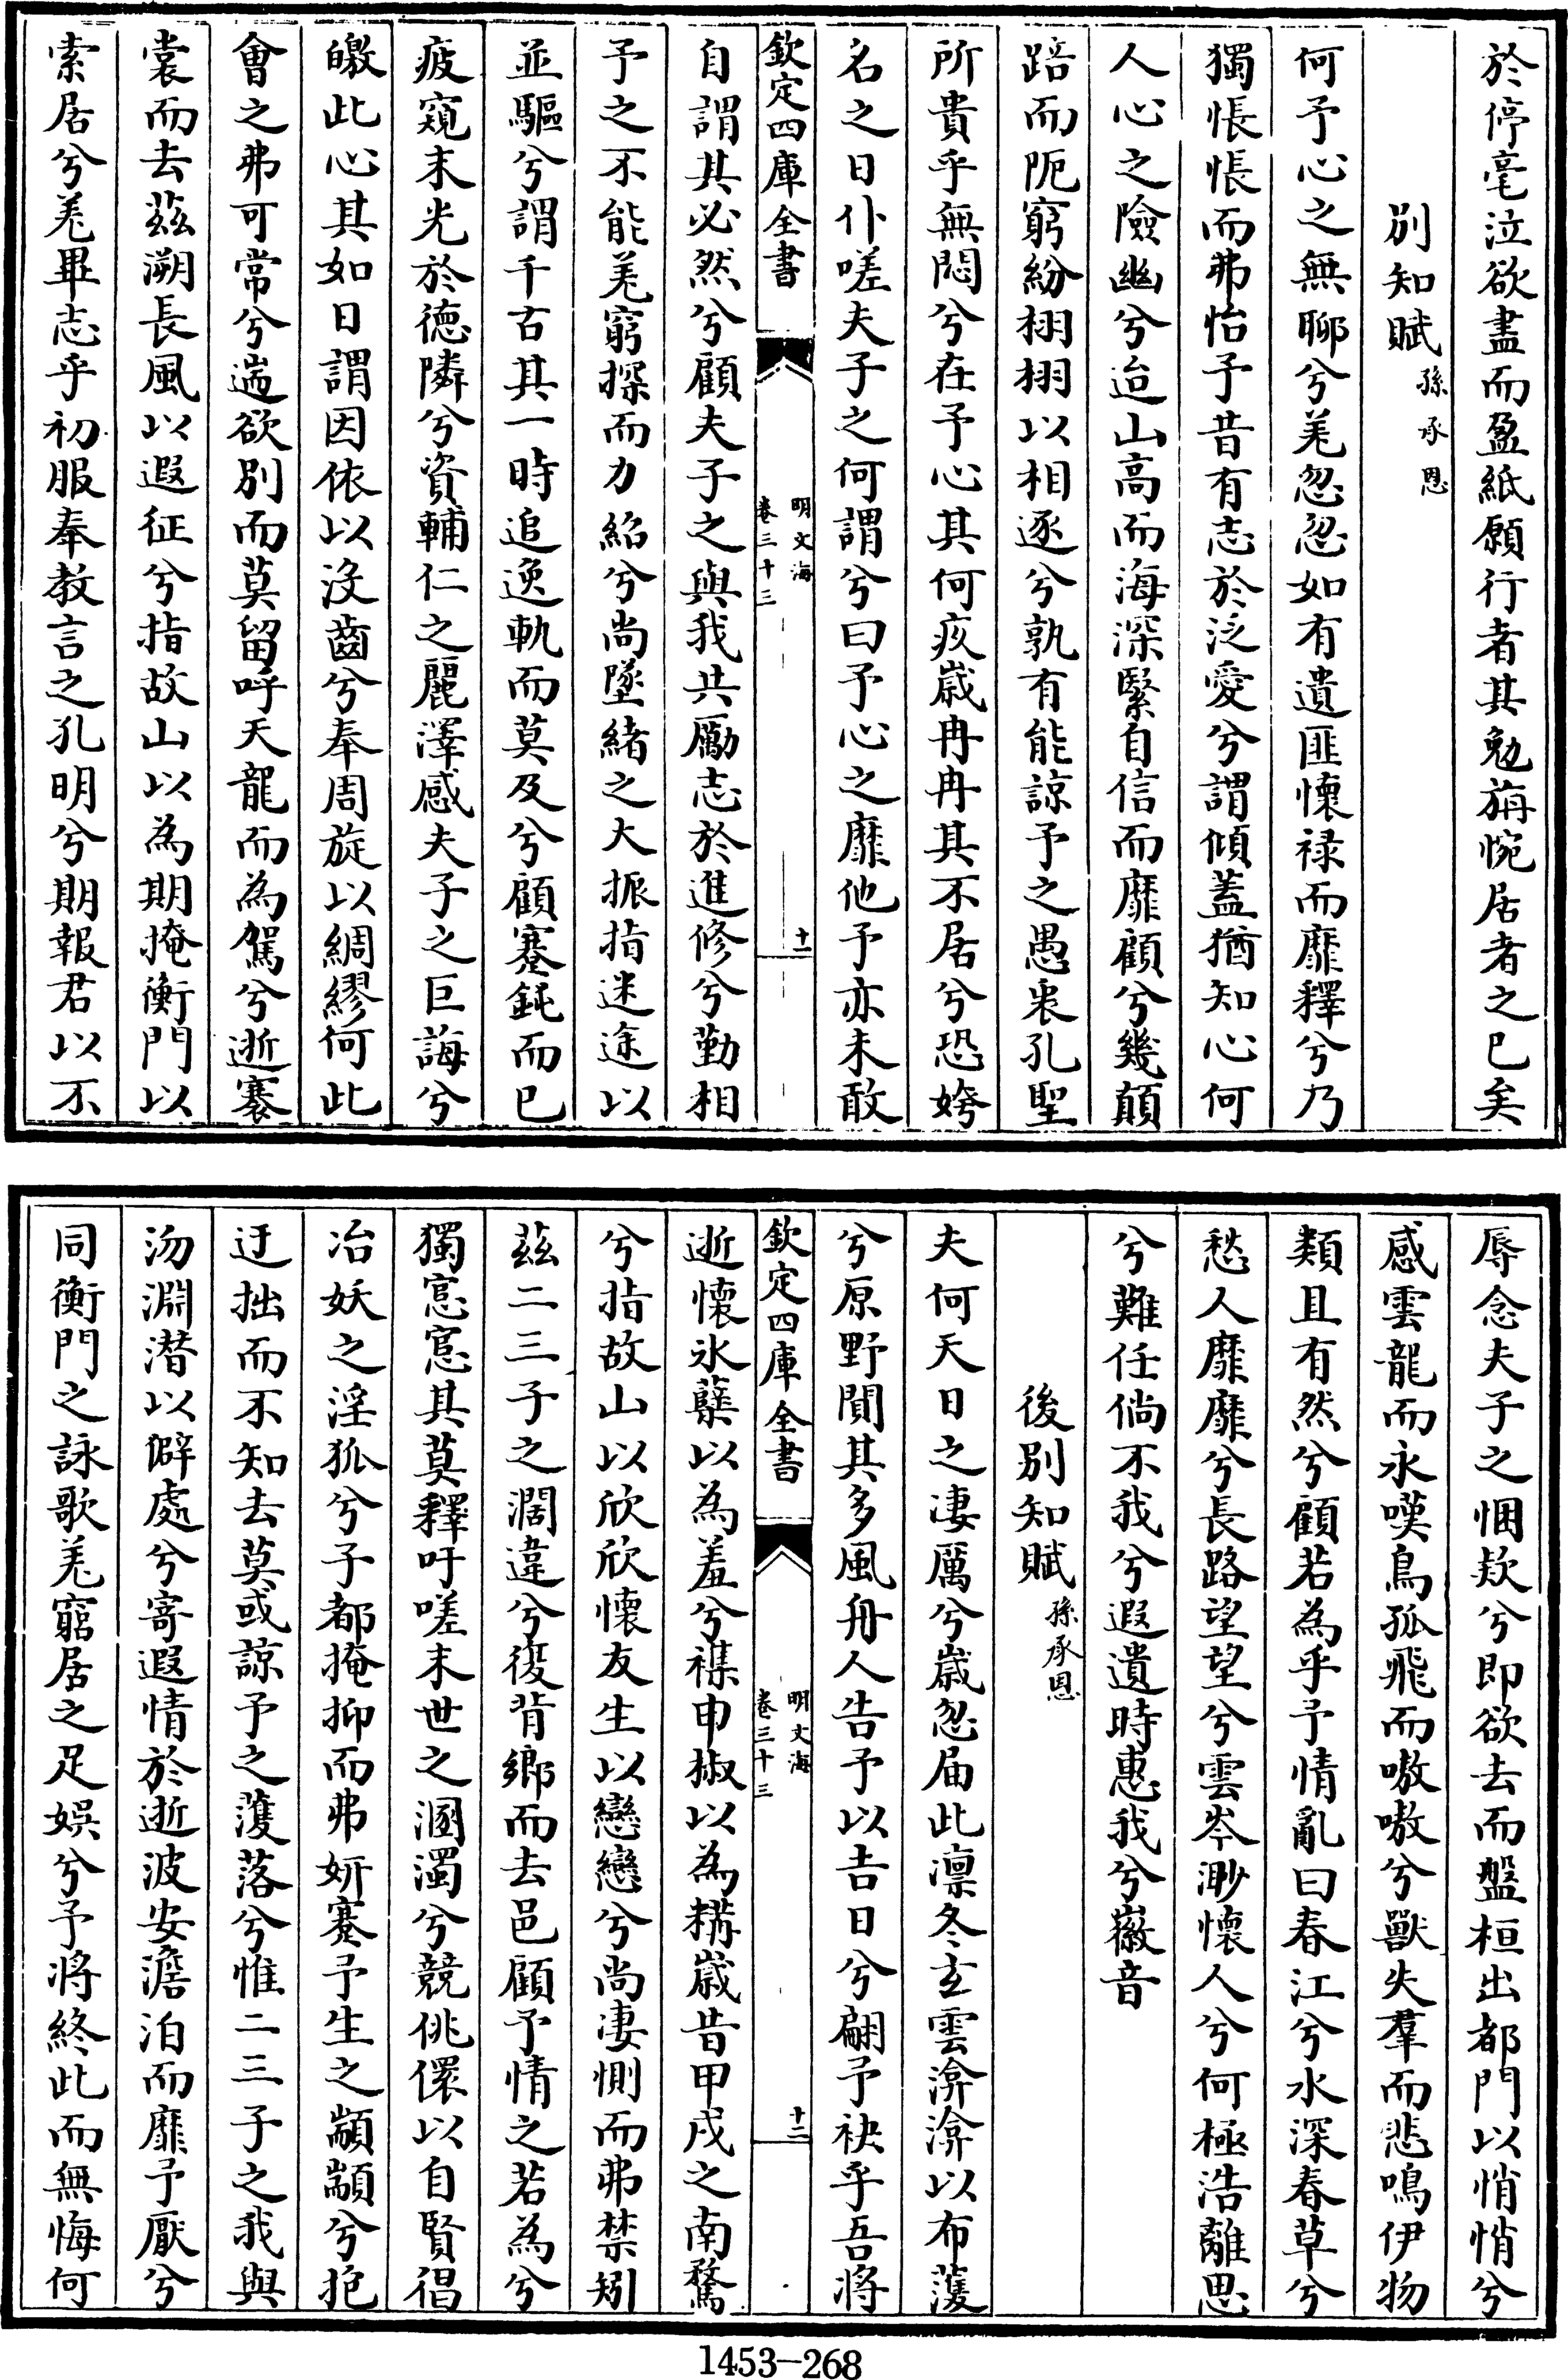 於停毫泣欲盡而盈紙願行者其勉旃惋居者之已矣
別知賦孫承恩
何予心之無聊兮羌忽忽如有遺匪懷禄而靡釋兮乃
獨悵悵而弗怡予昔有志於泛愛兮謂傾蓋猶知心何
人心之險幽兮迨山高而海深緊自信而靡顧兮幾顛
踣而阨窮紛栩栩以相逐兮孰有能諒予之愚衷孔聖
所貴乎無悶兮在予心其何疚歲冉冉其不居兮恐姱
名之日仆嗟夫子之何謂兮曰予心之靡他予亦未敢
欽定四庫全書
明文海
卷三十三
十一
自謂其必然兮顧夫子之與我共勵志於進修兮勤相
予之不能羌窮探而力紹兮尚墜緒之大振指迷途以
並驅兮謂千古其一時追逸軌而莫及兮顧蹇鈍而已
疲窺末光於德隣兮資輔仁之麗澤感夫子之巨誨兮
皦此心其如日謂因依以沒齒兮奉周旋以綢繆何此
會之弗可常兮遄欲別而莫留呼天龍而為駕兮逝褰
裳而去茲溯長風以遐征兮指故山以為期掩衡門以
索居兮羌畢志乎初服奉教言之孔明兮期報君以不
辱念夫子之悃欵兮即欲去而盤桓出都門以悄悄兮
感雲龍而永嘆鳥孤飛而嗷嗷兮獸失羣而悲鳴伊物
類且有然兮顧若為乎予情亂曰春江兮水深春草兮
愁人靡靡兮長路望望兮雲岑渺懷人兮何極浩離思
兮難任倘不我兮遐遺時惠我兮徽音
後別知賦孫承恩
夫何天日之凄厲兮歲忽届此凛冬玄雲渰渰以布濩
兮原野閴其多風舟人告予以吉日兮翩予袂乎吾將
欽定四庫全書
明文海
卷三十三
十二
逝懷氷蘖以為羞兮襍申椒以為糈歲昔甲戌之南騖
兮指故山以欣欣懷友生以戀戀兮尚凄惻而弗禁矧
茲二三子之濶違兮復背鄉而去邑顧予情之若為兮
獨窓窓其莫釋吁嗟末世之溷濁兮競佻儇以自賢倡
冶妖之淫狐兮子都掩抑而弗妍蹇予生之顓顓兮抱
迂拙而不知去莫或諒予之濩落兮惟二三子之我與
沕淵潛以僻處兮寄遐情於逝波安澹泊而靡予厭兮
同衡門之詠歌羌窮居之足娛兮予將終此而無悔何
1453-268